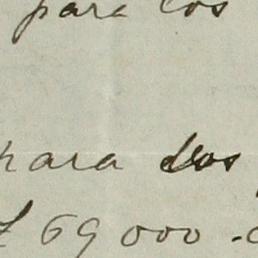 para los
para los
69000.